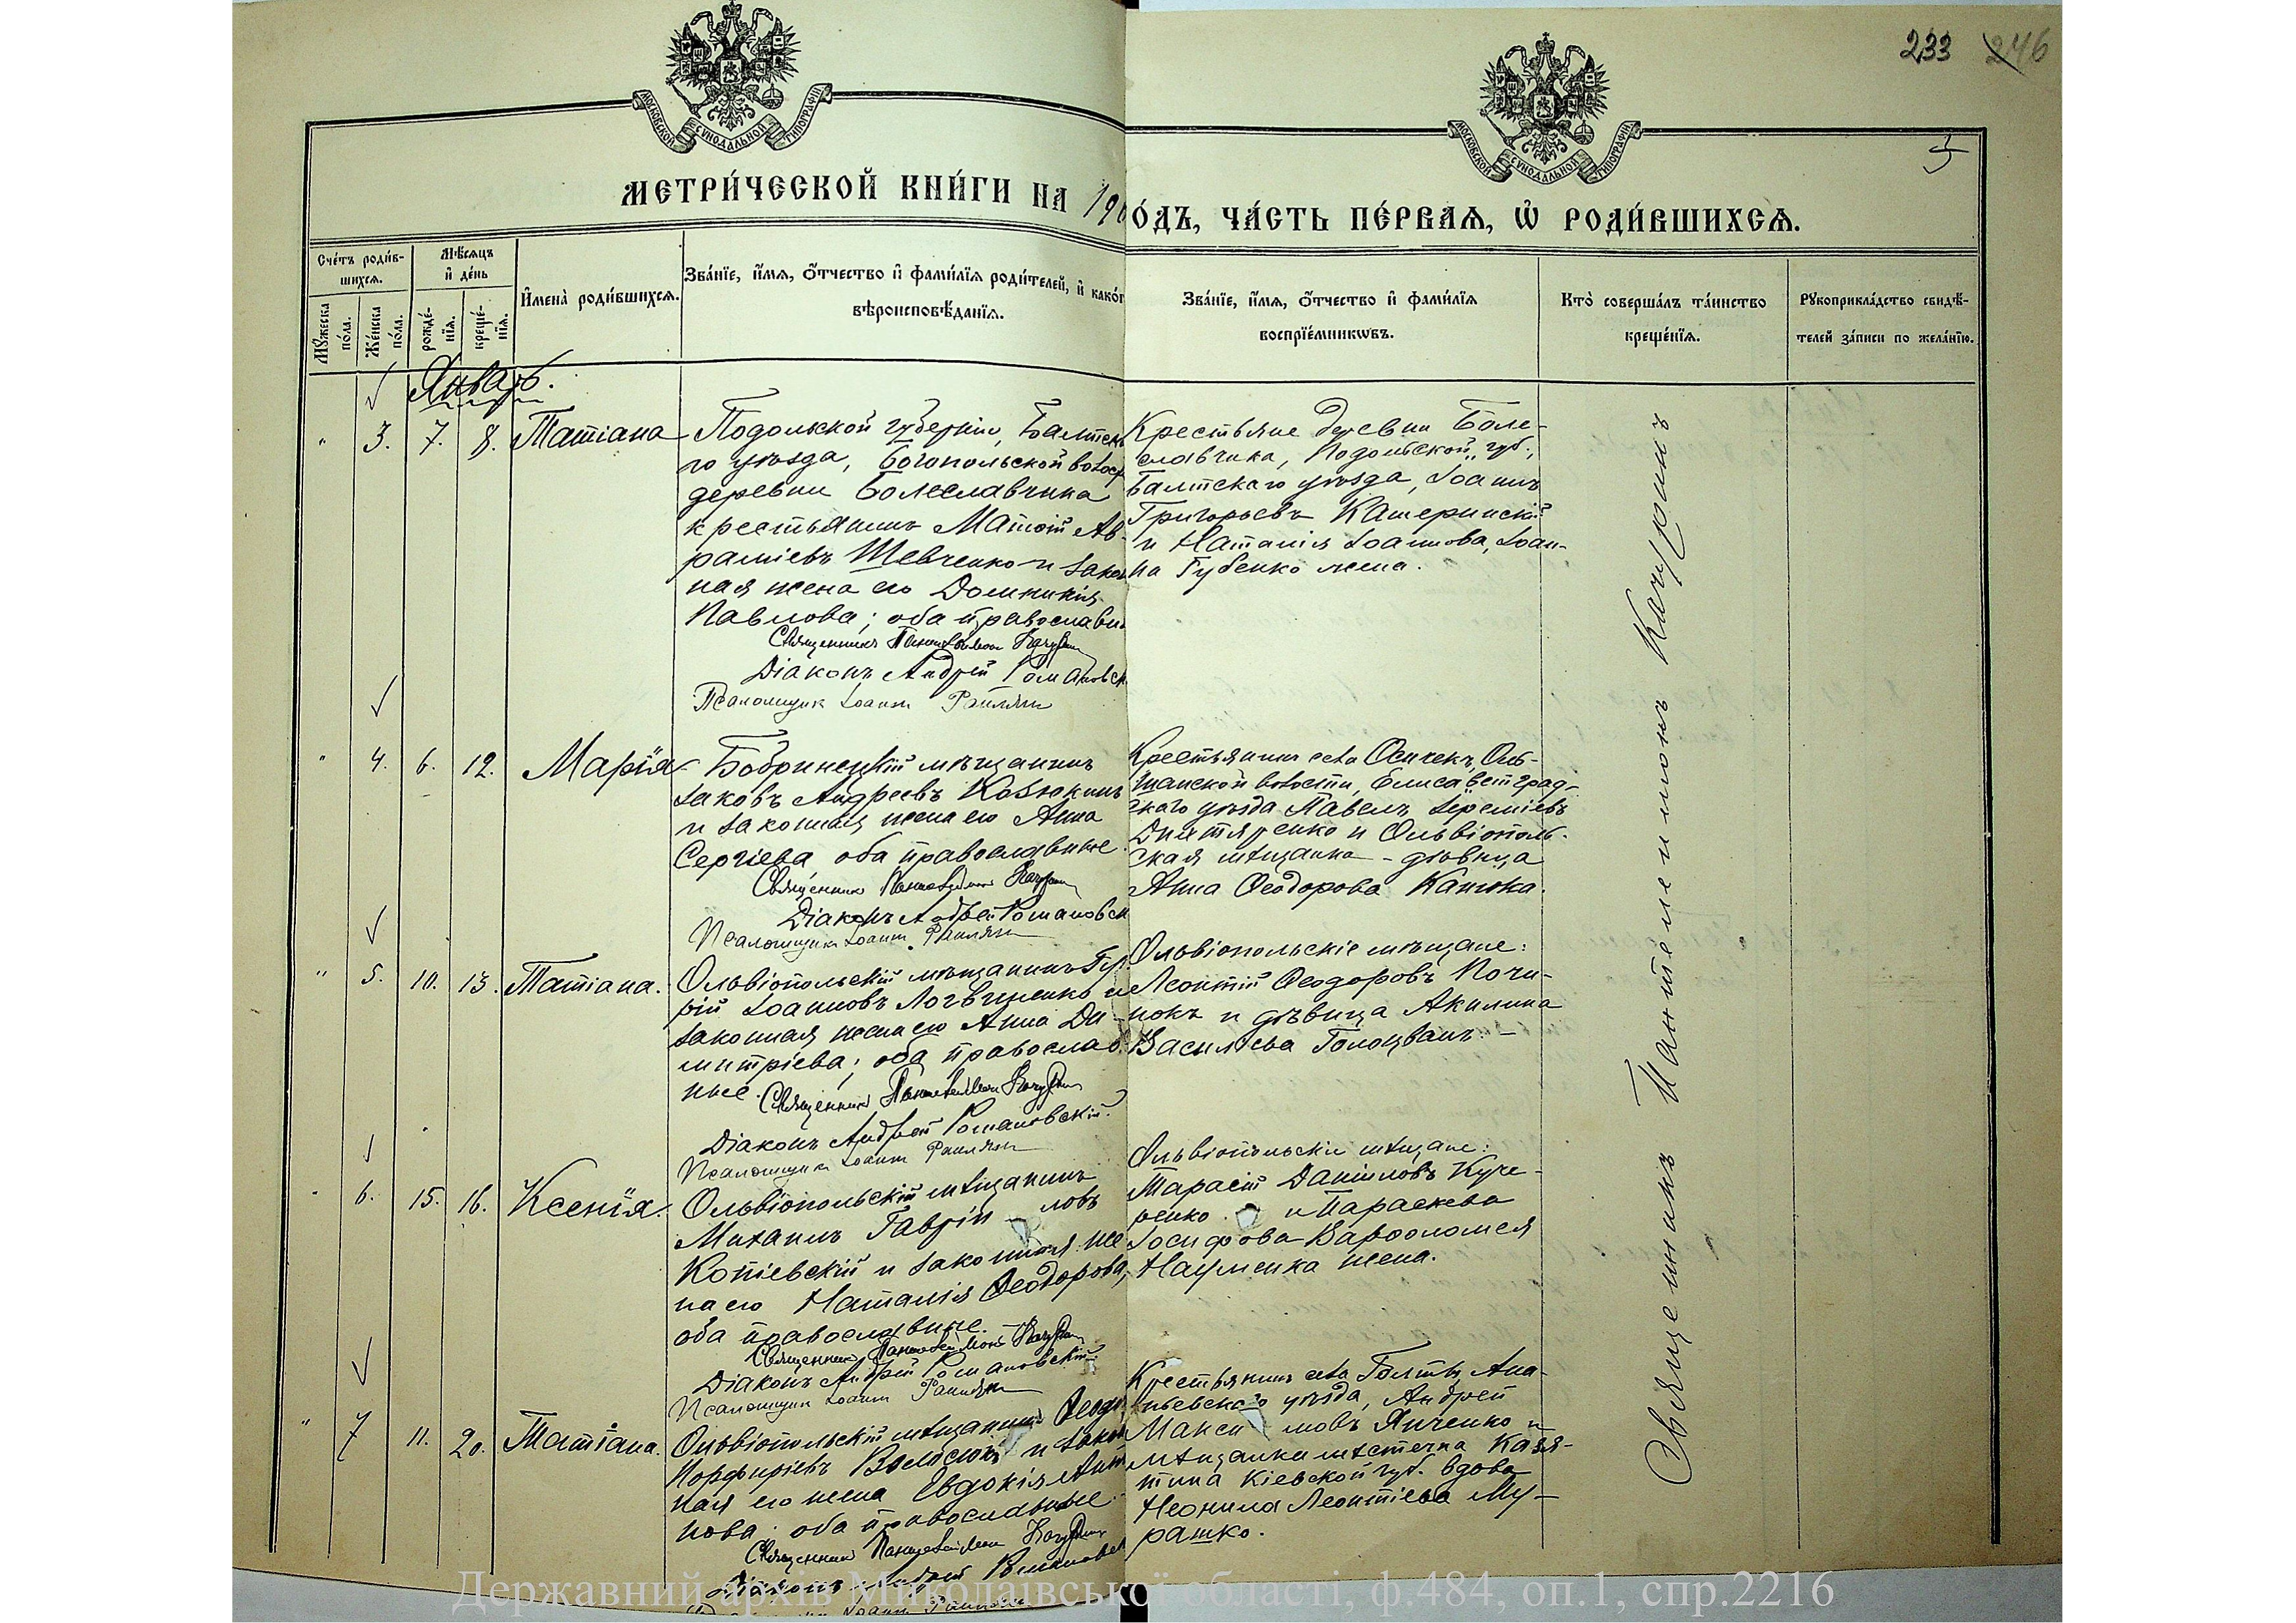 233 246
МОСКОВСКОЙ СѴНОДАЛЬНОЙ ТИПОГРАФІИ
МОСКОВСКОЙ СѴНОДАЛЬНОЙ ТИПОГРАФІИ
МЕТРИ́ЧЕСКОЙ КНИ́ГИ НА 190
О́ДЪ, ЧА́СТЬ ПЕ́РВАѦ, Ѡ҆ РОДИ́ВШИХСѦ.
Сче́тъ роди́в-
шихсѧ.
Мѹ́жеска по́ла.
Же́нска по́ла.
Мѣ́сѧцъ
и҆ де́нь
рожде́-
нїѧ.
креще́-
нїѧ.
И҆мена̀ роди́вшихсѧ.
Зва́нїе, и҆́мѧ, ѻ҆́тчество и҆ фами́лїѧ роди́телей, и҆ како́г
вѣроисповѣ́данїѧ.
Зва́нїе, и҆́мѧ, ѻ҆́тчество и҆ фами́лїѧ
воспрїе́мникѡвъ.
Кто̀ соверша́лъ та́инство
креще́нїѧ.
Рꙋкоприкла́дство свидѣ́-
телей за́писи по жела́нїю.
Январь.
" 3. 7. 8. Татіана
Подольской губерніи, Балтск
го уѣзда, Богопольской волос
деревни Болеславчика
крестьянинъ Матѳій Ав-
раміевъ Шевченко и закон
ная жена его Домникія
Павлова; оба православн
Священникъ Пантелеимон Качурин
Діаконъ Андрей Романовск
Псаломщик Іоанн
Крестьяне деревни Боле-
славчика, Подольской губ.,
Балтскаго уѣзда, Іоаннъ
Григорьевъ Катеринскій
и Наталія Іоаннова, Іоан-
на Губенко жена.
" 4. 6. 12. Марія
Бобринецкій мѣщанинъ
Іаковъ Андреевъ Козюкинъ
и законная жена его Анна
Сергіева оба православные.
Священник Пантелеимон Качурин
Діаконъ Андрей Романовск
Псаломщик Іоанн
Крестьянин села Осичекъ, Оль-
шанской волости, Елисаветград-
скаго уѣзда Павелъ Іереміевъ
и Ольвіополь-
ская мѣщанка - дѣвица
Анна Ѳеодорова Канюка.
" 5. 10. 13. Татіана.
Ольвіопольскій мѣщанинъ Гу
рій Іоанновъ Логвиненко и
законная жена его Анна Ди-
митріева; оба православ-
ные.
Священник Пантелеимон Качурин
Діаконъ Андрей Романовскій
Псаломщик Іоанн
Ольвіопольскіе мѣщане:
Леонтій Ѳеодоровъ Почи-
нокъ и дѣвица Акилина
Васильева Голоцванъ. -
" 6. 15. 16. Ксенія.
Ольвіопольскій мѣщанинъ
Михаилъ Гавріи ловъ
Копіевскій и законная же
на его Наталія Ѳеодорова,
оба православные.
Священник Пантелеимон Качурин
Діаконъ Андрей Романовскій
Псаломщик Іоанн
Ольвіопольскіе мѣщане:
Тарасій Даніиловъ Куче-
ренко и Параскева
Іосифова Варѳоломея
Науменка жена.
" 7 11. 20. Татіана.
Ольвіопольскій мѣщанинъ Ѳеодо
Порфиріевъ и закон
ная его жена Евдокія Ант
нова; оба православные.
Священник Пантелеимон Качурин
Діаконъ Андрей
Крестьянинъ села Голты, Ана-
ньевскаго уѣзда, Андрей
Макси мовъ Янченко и
мѣщанка мѣстечка Казя-
тина Кіевской губ. вдова
Неонила Леонтіева Му-
рашко.
Священникъ Пантелеимонъ Качуринъ
Державний архів Миколаївської області, ф.484, оп.1, спр.2216